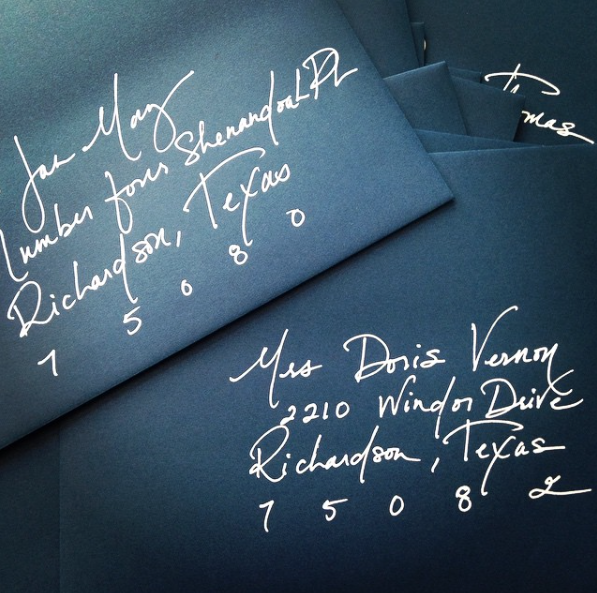 Jan May
Number four Shenandoal PL
Richardson, Texas
7 5 0 8 0
Thomas
Mrs Doris Vernon
2210 Windor Drive
Richardson, Texas
7 5 0 8 2